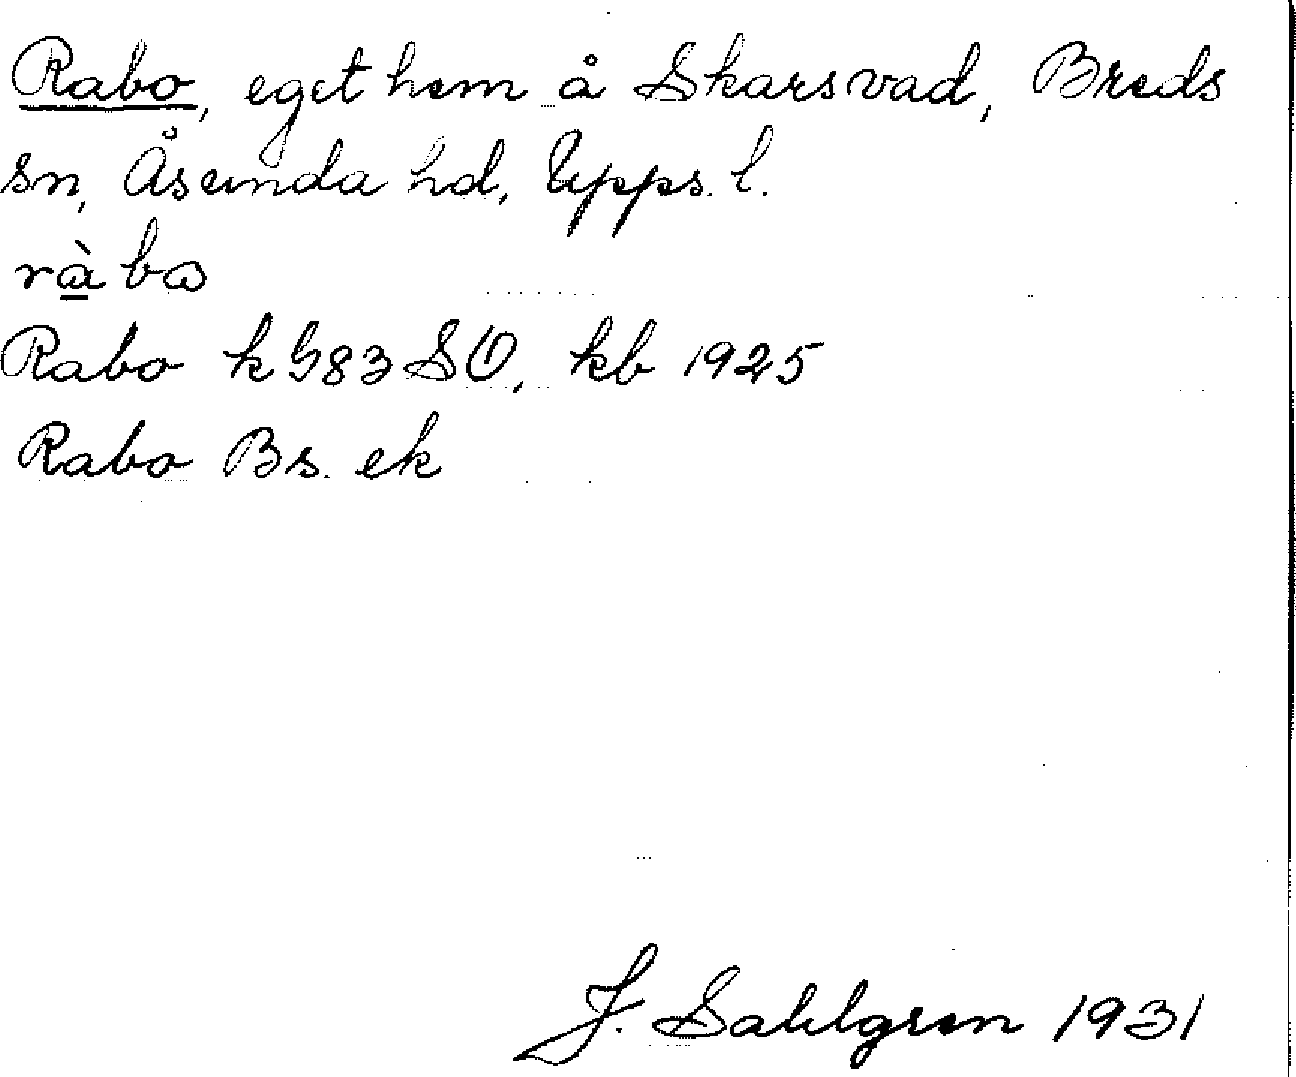 Rabo, eget hem å Skarsvad, Breds
sn, Åsunda hd, Upps. l.
ràbω
Rabo k G83 SO, kb 1925
Rabo Bs. ek
J. Sahlgren 1931